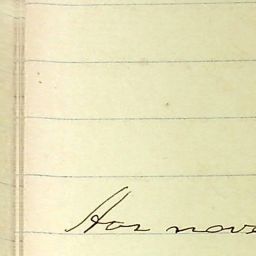 Hos nove